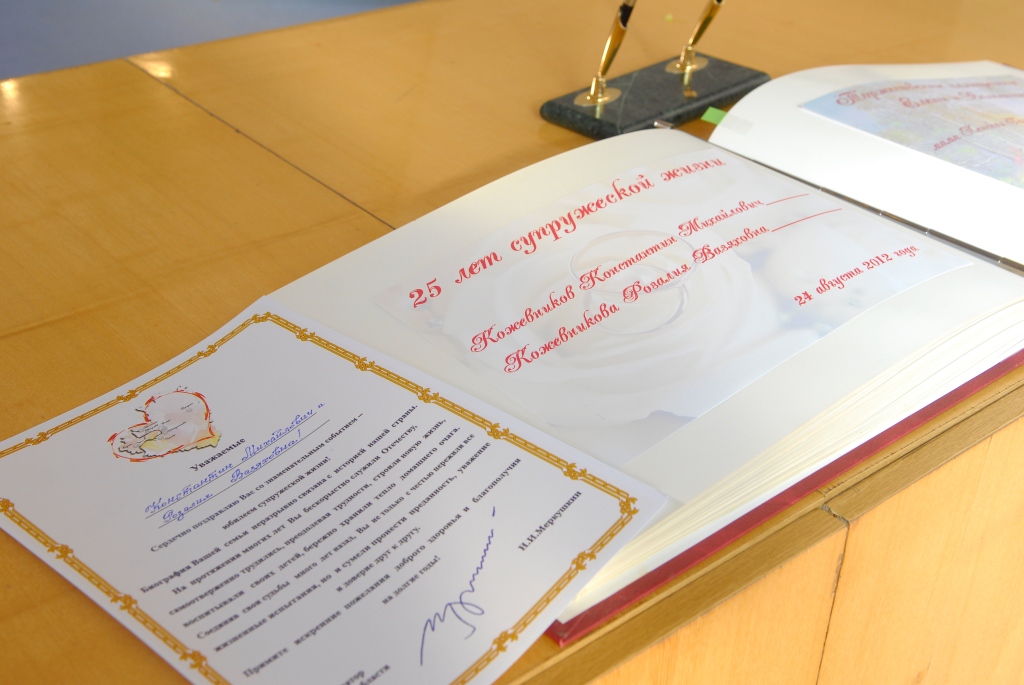 25 лет супружеской жизни
Кожевников Константин Михайлович
Кожевникова Розалия Валяховна
24 августа 2012 года
Уважаемые
Константин Михайлович и
Розалия Валяховна!
Сердечно поздравляю Вас со знаменательным событием –
юбилеем супружеской жизни!
Биография Вашей семьи неразрывно связана с историей нашей страны.
На протяжении многих лет Вы бескорыстно служили Отечеству,
самоотверженно трудились, преодолевая трудности, строили новую жизнь,
воспитывали своих детей, бережно хранили тепло домашнего очага.
Соединив свои судьбы много лет назад, Вы не только с честью пережили все
жизненные испытания, но и сумели пронести преданность, уважение
и доверие друг к другу.
Примите искренние пожелания доброго здоровья и благополучия
на долгие годы!
Н.И.Меркушкин